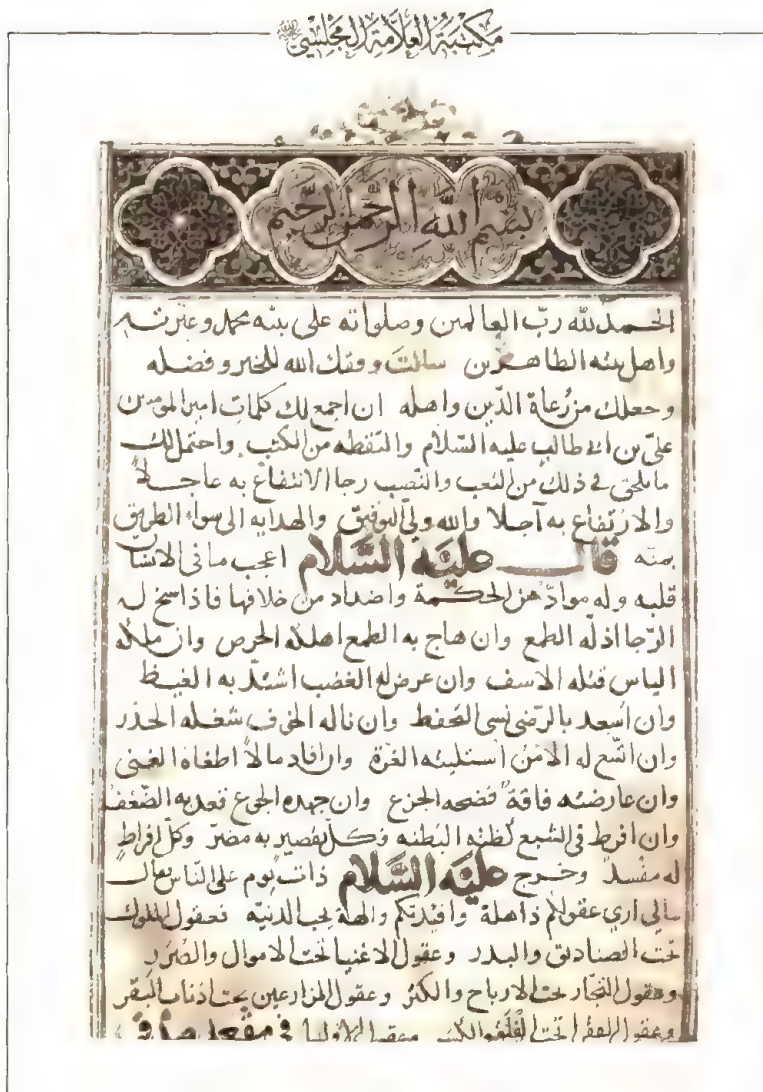 مكتبة العلامة المجلسي
بسم الله الرحمن الرحيم
الحمد لله رب العالمين وصلواته على نبيه محمد وعترته
واهل بيته الطاهرين سالت وفقك الله للخير وفضله
وجعلك من رعاة الدّين واهله ان اجمع لك كلمات امير المومنين
علىّ بن ابى طالب عليه السّلام والتقطه من الكتب واحتمل لك
ما يلحق في ذلك من التعب والنّصب رجا الانتفاع به عاجلاً
والارتفاع به آجلا والله ولىّ التوفيق والهدايه الى سواء الطريق
بمنّه قال عليه السَّلام اعجب ما فى الانسان
قلبه وله موادّ من الحكمة واضداد من خلافها فاذا سنح له
الرّجا اذلّه الطمع وان هاج به الطمع اهلكه الحرص وان ملكه
الياس قتله الاسف وان عرض له الغضب اشتدّ به الغيظ
وان اسعد بالرّضى نسى التحفظ وان ناله الخوف شغله الحذر
وان اتّسع له الامن استلبته الغرّة وان افاد مالاً اطغاه الغنى
وان عارضته فاقة فضحه الجزع وان جهده الجوع قعد به الضّعف
وان افرط فى الشبع كظته البطنه فكلّ تقصير به مضرّ وكلّ افراط
له مفسد وخرج عليه السَّلام ذات يوم على النّاس فقال
مالي ارى عقولكم ذاهلة وافيدتكم والهة بحب الدنيه فعقول الملوك
تحت الصناديق والبدر وعقول الاغنيا تحت الاموال والصُرَر
وعقول التجّار تحت الارباح والكثر وعقول المزارعين تحت اذناب البقر
وعقول الفقرا تحت وعقول الاوليا فى مقعد صدق